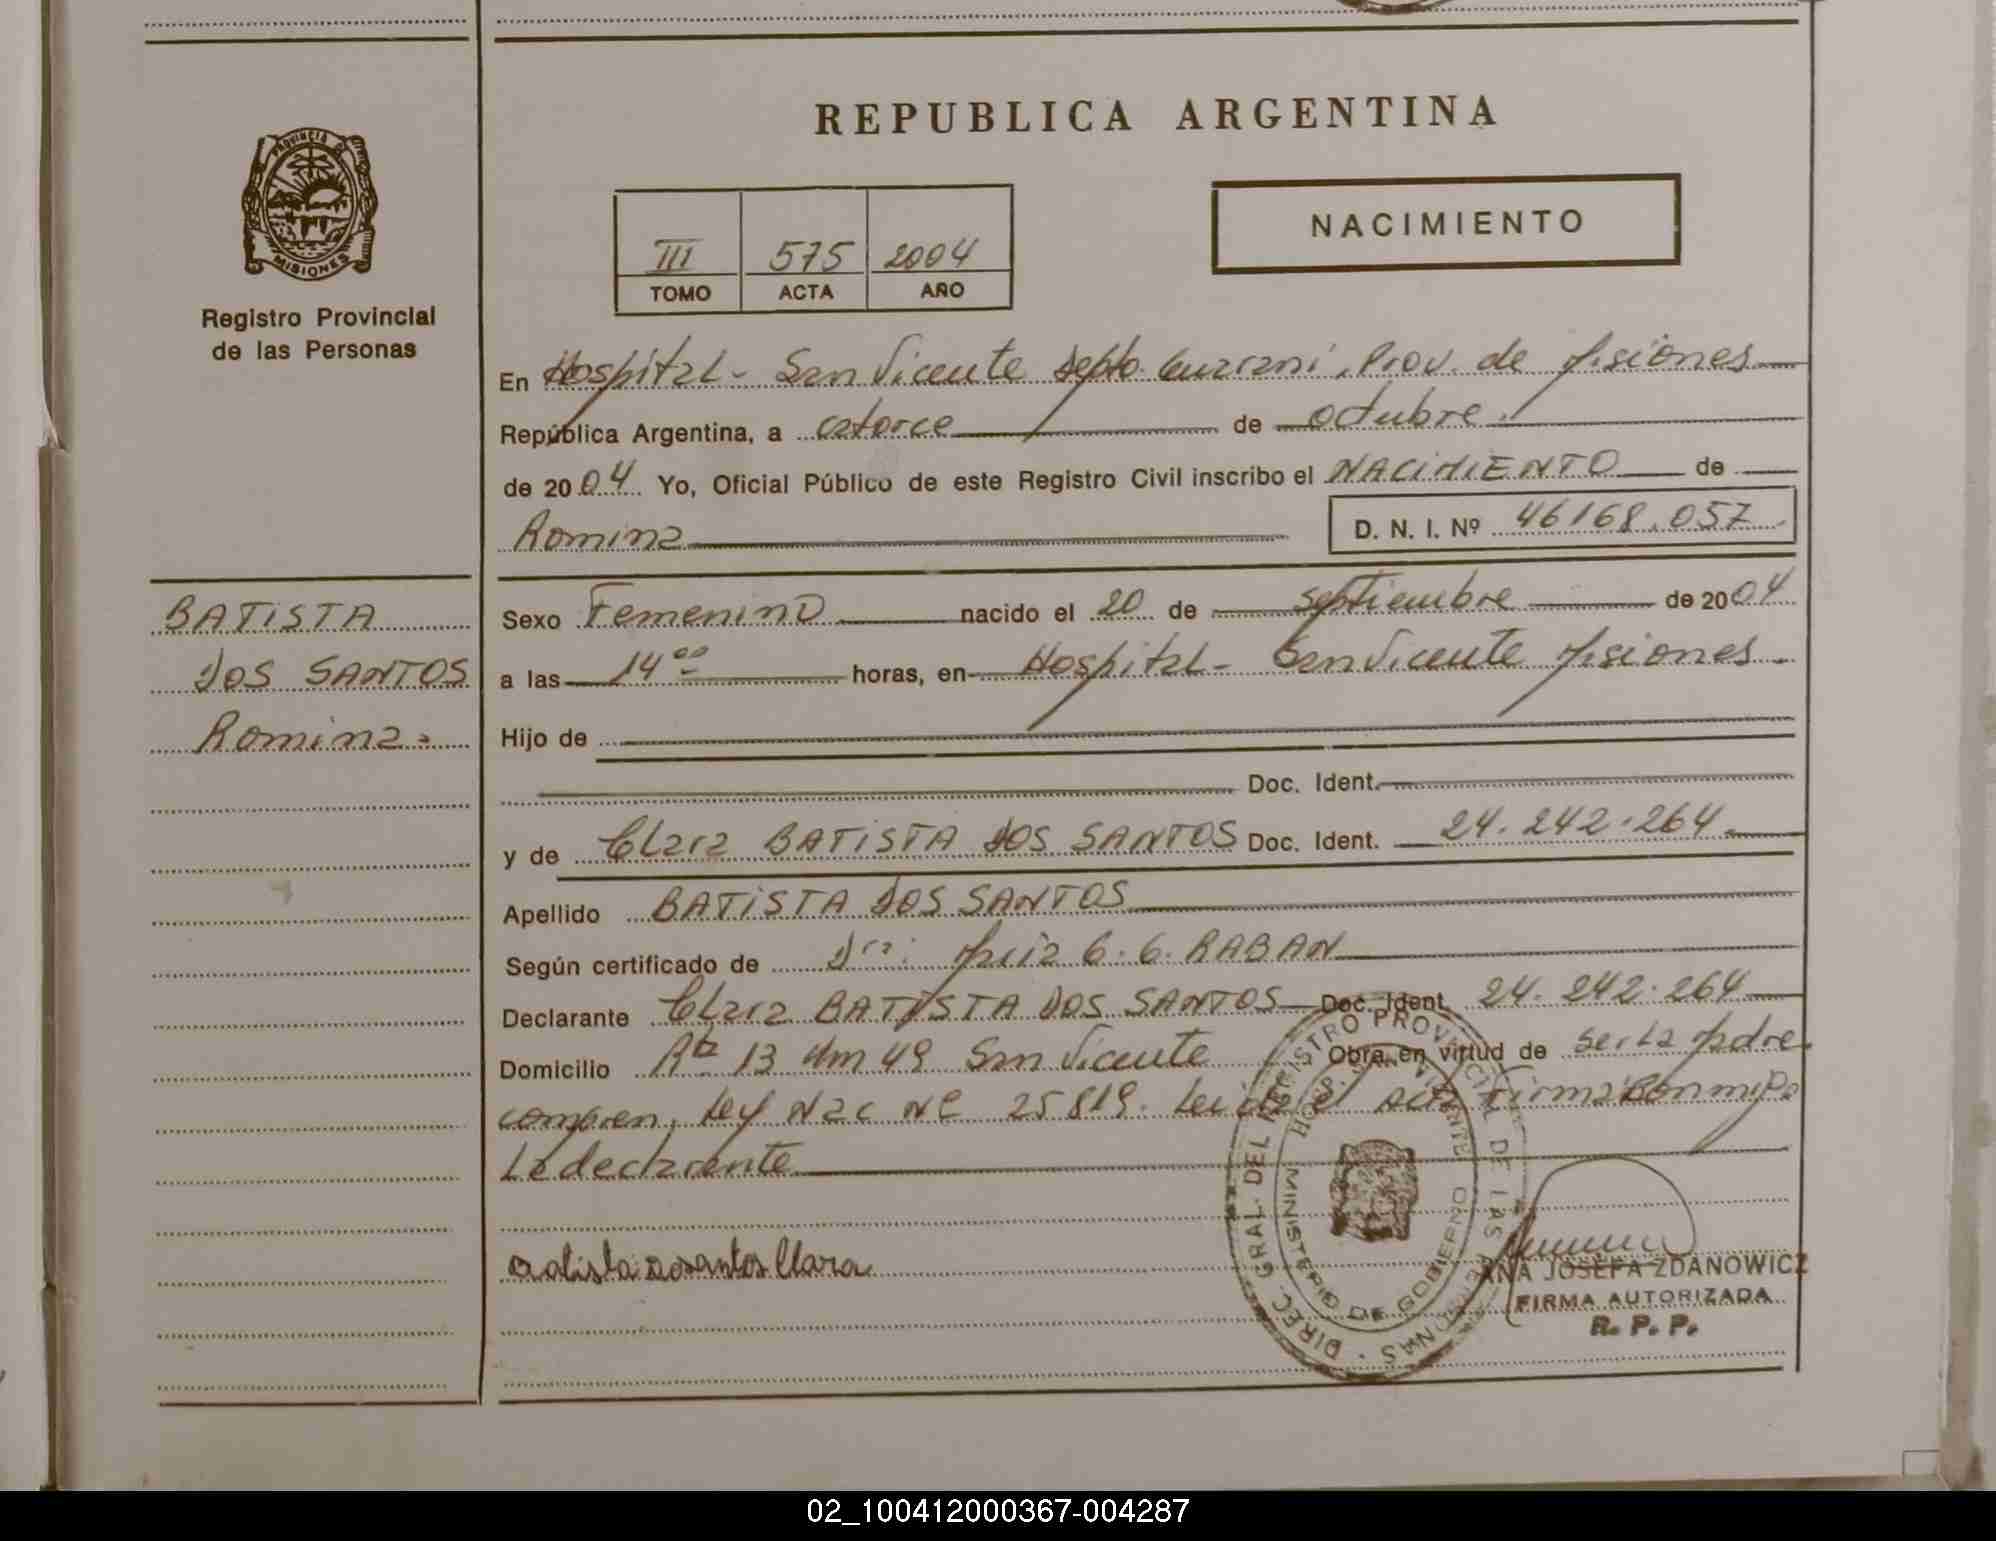 REPUBLICA ARGENTINA
PROVINCIA DE
MISIONES
Registro Provincial
de las Personas
NACIMIENTO
III 575 2004
TOMO ACTA AÑO
En Hospital - San Vicente Depto. Guarani, Prov. de Misiones
República Argentina, a catorce de octubre.
de 2004 Yo, Oficial Público de este Registro Civil inscribo el NACIMIENTO de
Romina D. N. I. Nº 46168.057
BATISTA
DOS SANTOS
Romina.
Sexo Femenino nacido el 20 de septiembre de 2004
a las 14 00 horas, en Hospital - San Vicente Misiones
Hijo de
Doc. Ident.
y de Clara BATISTA DOS SANTOS Doc. Ident. 24.242.264
Apellido BATISTA DOS SANTOS
Según certificado de Dra: G. G. RABAN
Declarante Clara BATISTA DOS SANTOS Doc. Ident. 24.242.264
Domicilio Rta 13 Km 49 San Vicente Obra en virtud de ser la Madre
compren, Ley Nac Nº 25819. Leida el acta Firma con migo
La declarante
Batista Dosantos Clara
DIREC. GRAL. DEL REGISTRO PROVINCIAL DE LAS PERSONAS
MINISTERIO DE GOBIERNO
ANA JOSEFA ZDANOWICZ
FIRMA AUTORIZADA
R. P. P.
02_100412000367-004287